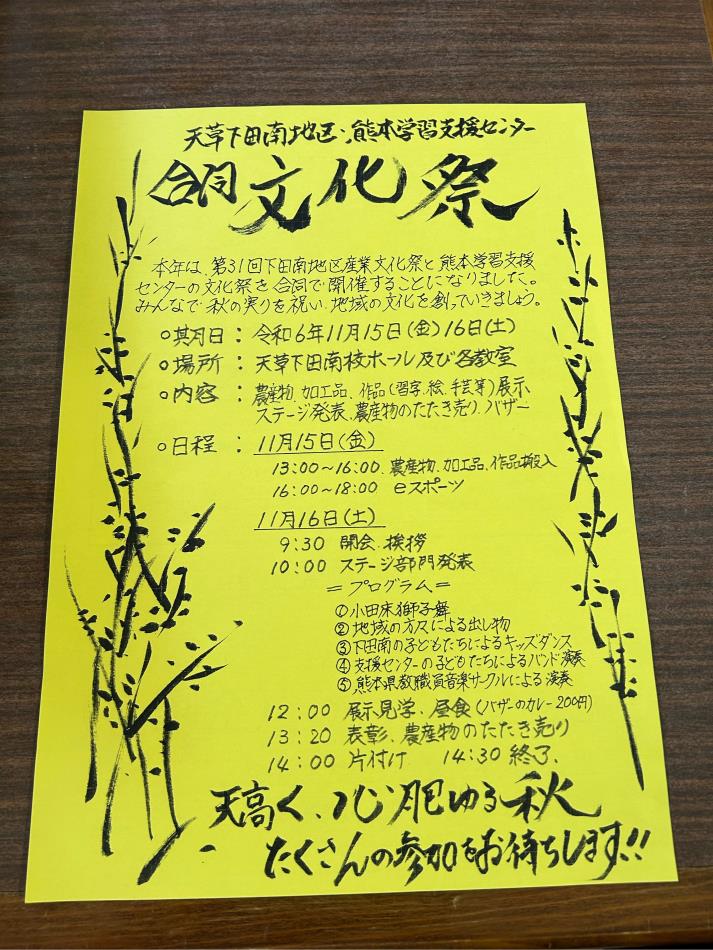 天草下田南地区・熊本学習支援センター
合同文化祭
本年は、第31回下田南地区産業文化祭と熊本学習支援
センターの文化祭を合同で開催することになりました。
みんなで秋の実りを祝い、地域の文化を創っていきましょう。
○期日：令和6年11月15日(金)16日(土)
○場所：天草下田南校ホール及び各教室
○内容：農産物、加工品、作品(習字、絵、手芸等)展示
ステージ発表、農産物のたたき売り、バザー
○日程：11月15日(金)
13:00～16:00、農産物、加工品、作品搬入
16:00～18:00 eスポーツ
11月16日(土)
9:30 開会、挨拶
10:00 ステージ部門発表
＝プログラム＝
①小田床獅子舞
②地域の方々による出し物
③下田南の子どもたちによるキッズダンス
④支援センターの子どもたちによるバンド演奏
⑤熊本県教職員音楽サークルによる演奏
12:00 展示見学、昼食(バザーのカレー200円)
13:20 表彰、農産物のたたき売り
14:00 片付け 14:30 終了、
天高く、心肥ゆる秋
たくさんの参加をお待ちします!!